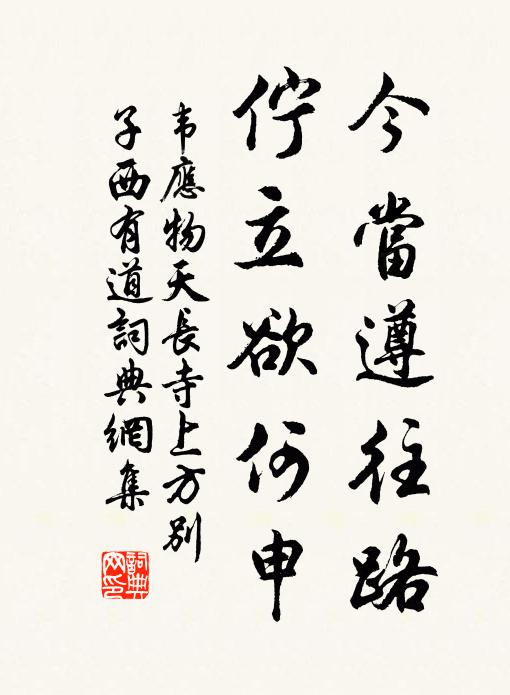 今當遵往路
佇立欲何申
韋應物天長寺上方別
子西有道詞典網集
詞典網印